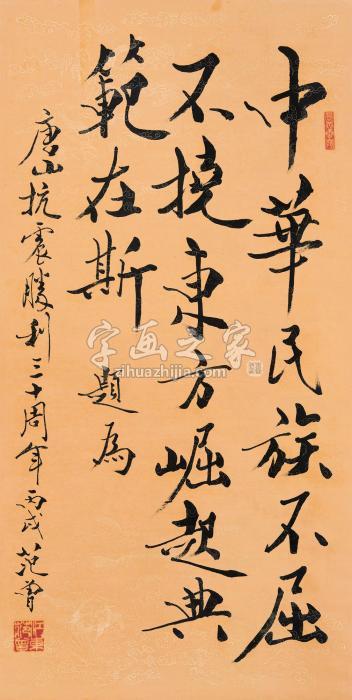 中華民族不屈
不撓東方崛起典
範在斯 題為
唐山抗震勝利三十周年丙戌范曾
字画之家
zihuazhijia.com